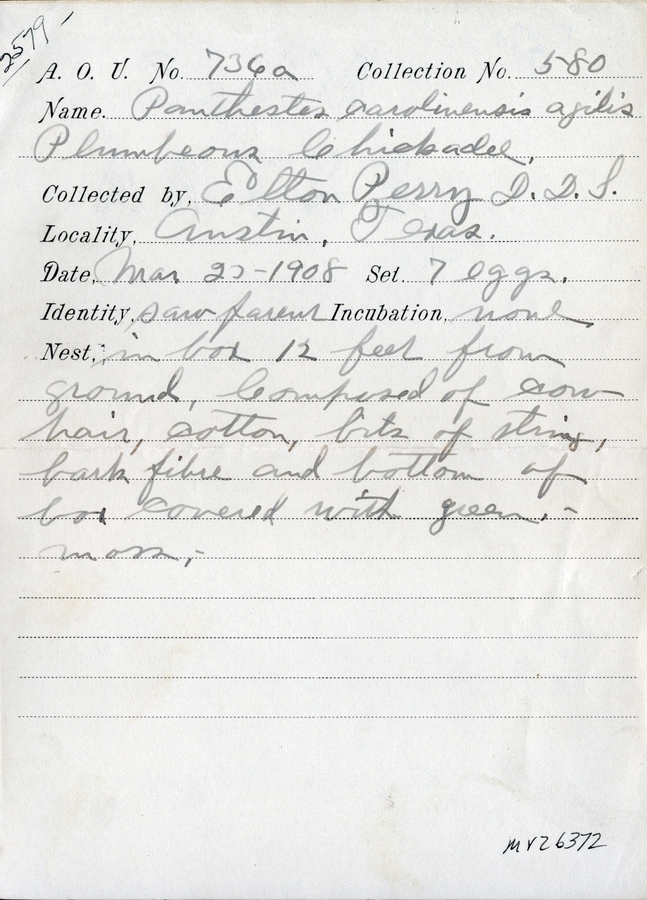 2579
A. O. U. No. 736a Collection No. 580
Name. Panthestes carolinensis agilis
Plumbeous Chickadee,
Collected by, Elton Perry D.D.S.
Locality, Austin, Texas.
Date, Mar. 1908 Set. 7 eggs.
Identity, saw parent Incubation, none
Nest, in box 12 feet from
ground, Composed of cow
hair, cotton, bits of string,
bark fibre and bottom of
box covered with green.-
moss,-
MVZ6372